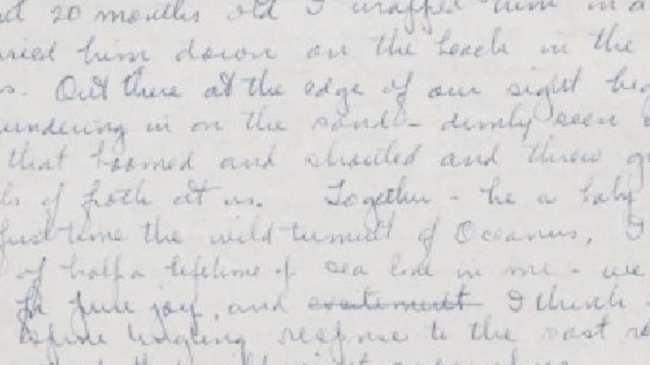 20 months old I wrapped him in a
him down on the beach in the
Out there at the edge of our sight
in on the sand - dimly seen
that boomed and shouted and threw
of froth at us. Together - he a baby
time the wild tumult of Oceanus, I
of half a lifetime of sea love in me - we
for pure joy, and excitement I think
spine tingling response to the vast